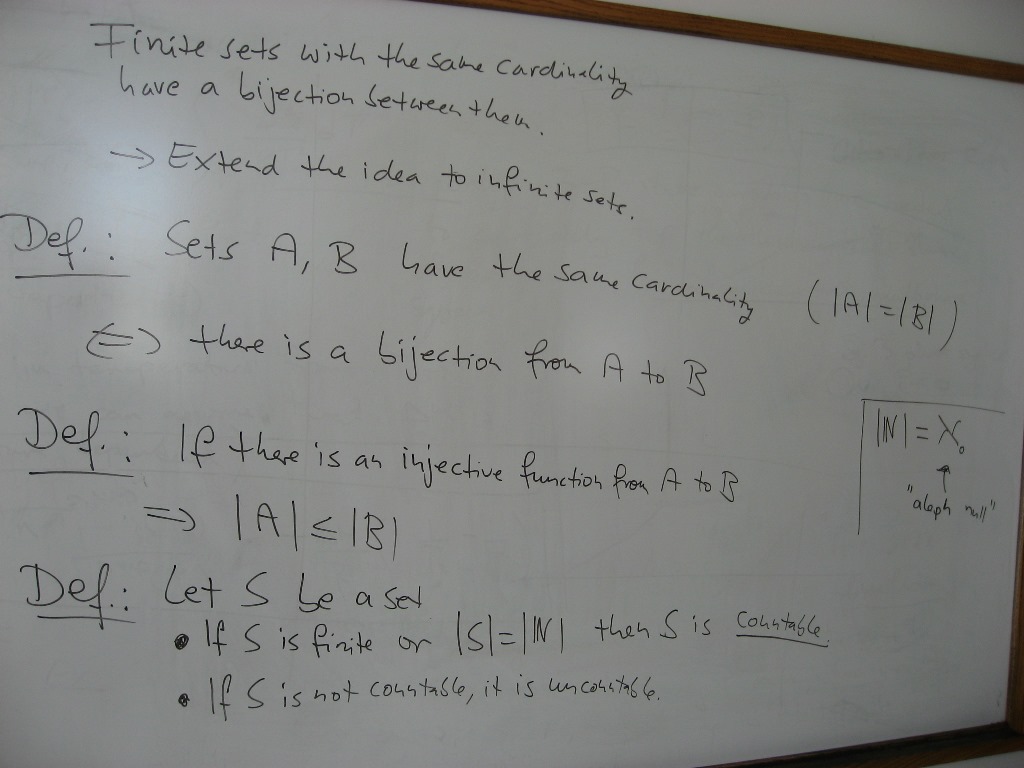 Finite sets with the same cardinality
have a bijection between them.
→ Extend the idea to infinite sets.
Def.: Sets A, B have the same cardinality (|A|=|B|)
⇔ there is a bijection from A to B
Def.: If there is an injective function from A to B
⇒ |A| ≤ |B|
|ℕ| = ℵ₀
↑
"aleph null"
Def.: Let S be a set
• If S is finite or |S|=|ℕ| then S is countable.
• If S is not countable, it is uncountable.